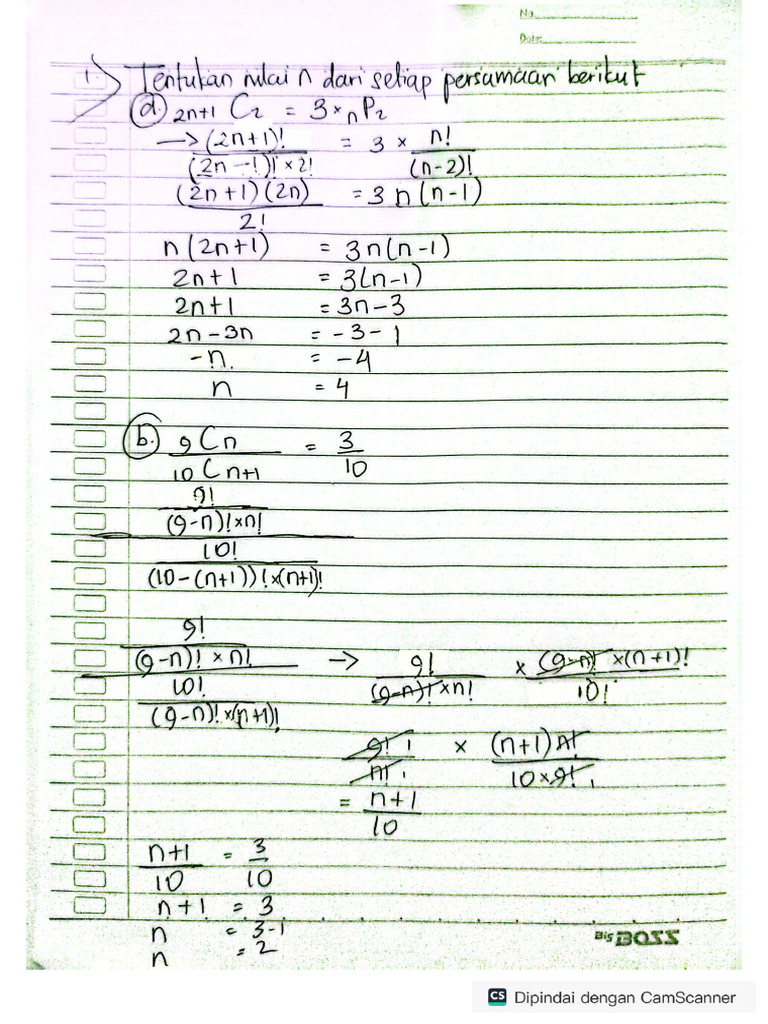 No.
Date:
1) Tentukan nilai n dari setiap persamaan berikut
(a) 2n+1 C2 = 3 × nP2
→ (2n+1)! / (2n-1)! × 2! = 3 × n! / (n-2)!
(2n+1)(2n) / 2! = 3n(n-1)
n(2n+1) = 3n(n-1)
2n+1 = 3(n-1)
2n+1 = 3n-3
2n-3n = -3-1
-n = -4
n = 4
(b.) 9Cn / 10Cn+1 = 3/10
9! / (9-n)! × n!
10! / (10-(n+1))! × (n+1)!
9! / (9-n)! × n! → 9! / (9-n)! × n! × (9-n)! × (n+1)! / 10!
10! / (9-n)! × (n+1)!
9! 1 / n! 1 × (n+1) n! / 10 × 9! 1
= n+1 / 10
n+1 / 10 = 3/10
n+1 = 3
n = 3-1
n = 2
Big BOSS
CS Dipindai dengan CamScanner